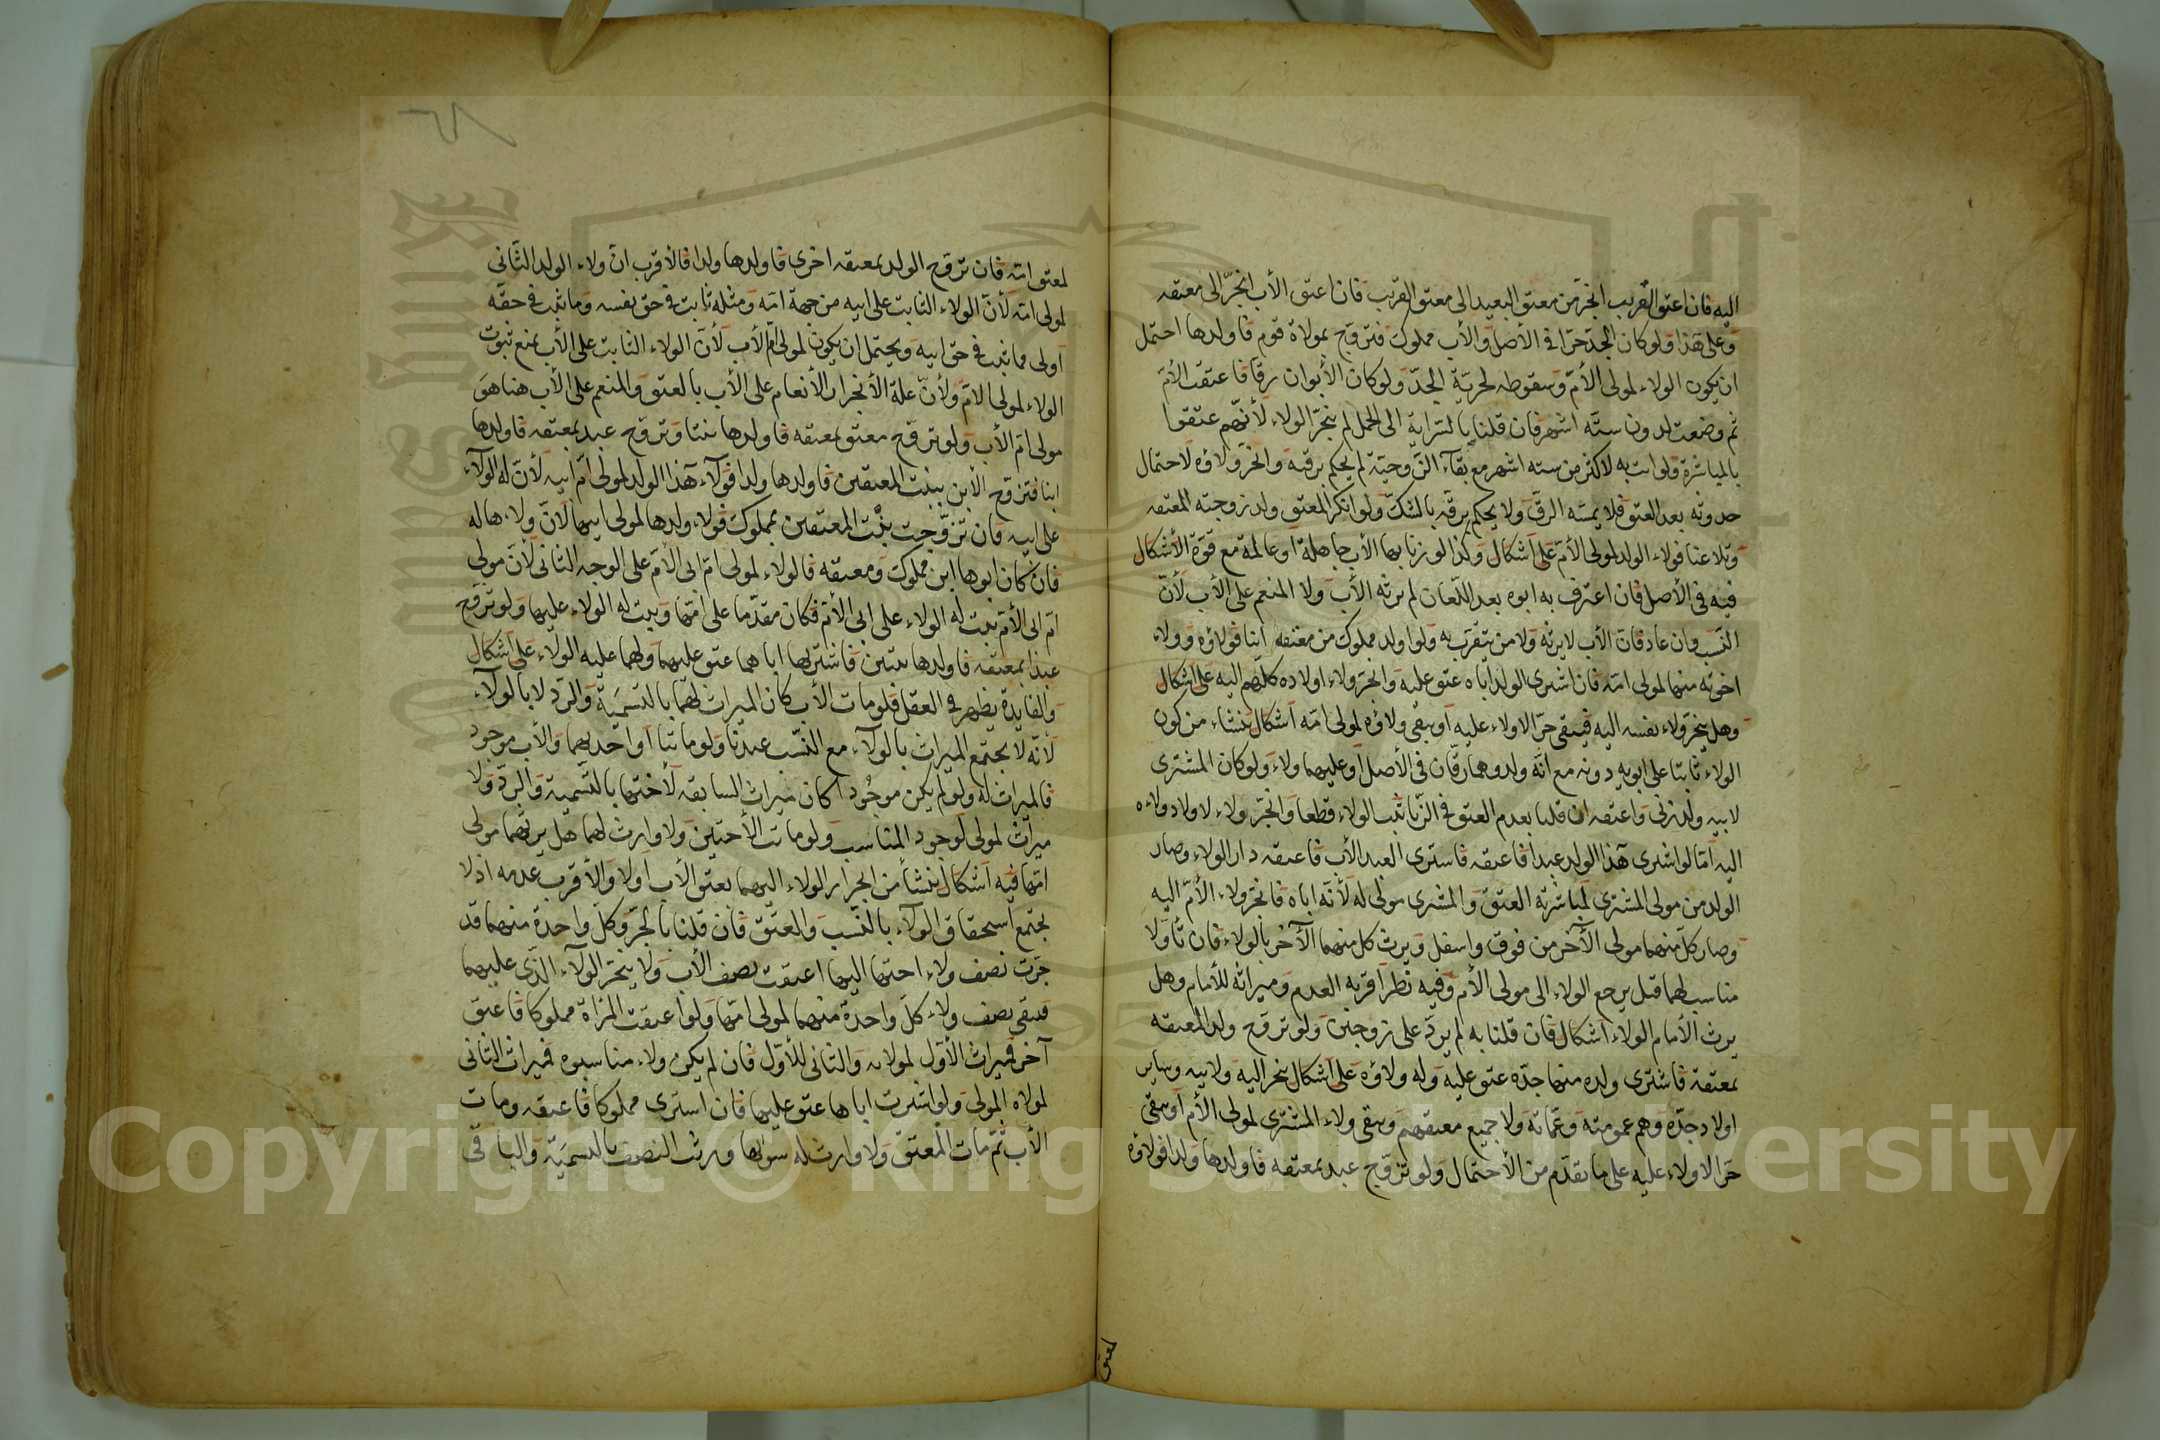 اليه فان اعتق القريب انجر من معتق البعيد الى معتق القريب فان اعتق الأب انجر الى معتقه
وعلى هذا ولو كان الجد حرا في الأصل والأب مملوك فتزوج بمولاة قوم فاولدها احتمل
ان يكون الولاء لمولى الأم وسقوطه لحرية الجد ولو كان الأبوان رقا فاعتقت الأم
ثم وضعت لدون ستة اشهر فان قلنا بالسراية الى الحمل لم ينجر الولاء لأنهم عتقوا
بالمباشرة ولو اتت به لاكثر من ستة اشهر مع بقاء الزوجية لم يحكم برقيه وانجر ولاؤه لاحتمال
حدوثه بعد العتق فلا يمسه الرق ولا يحكم برقه بالشك ولو انكر المعتق ولد زوجته المعتقه
وتلاعنا فولاء الولد لمولى الأم على اشكال وكذا لو زنا بها الأب جاهلة او عالمة مع قوة الأشكال
فيه في الأصل فان اعترف به ابوه بعد اللعان لم يرثه الأب ولا المنعم على الأب لأن
النسب وان عاد فان الأب لا يرثه ولا من يتقرب به ولو اولد مملوك من معتقه ابنا فولاؤه وولاء
اخوته منها لمولى امه فان اشترى الولد اباه عتق عليه وانجر ولاء اولاده كلهم اليه على اشكال
وهل ينجر ولاء نفسه اليه فيبقى حرا لا ولاء عليه او يبقى ولاؤه لمولى امه اشكال ينشاء من كون
الولاء ثابتا على ابويه دونه مع انه ولد وهما رقان في الأصل او عليهما ولاء ولو كان المشترى
لابيه ولد زنى واعتقه ان قلنا بعدم العتق في الزنا ثبت الولاء قطعا وانجر ولاء لاولاد ولاءه
اليه اما لو اشترى هذا الولد عبدا فاعتقه فاشترى العبد الأب فاعتقه دار الولاء وصار
الولد من مولى المشترى لمباشرته العتق والمشترى مولى له لأنه اباه فانجر ولاء الأم اليه
وصار كل منهما مولى الآخر من فوق واسفل ويرث كل منهما الآخر بالولاء فان ماتا ولا
مناسب لهما قيل يرجع الولاء الى مولى الأم وفيه نظر اقربه العدم وميراثه للأمام وهل
يرث الأمام الولاء اشكال فان قلنا به لم يرد على زوجين ولو تزوج ولد المعتقه
بمعتقة فاشترى ولده منها جده عتق عليه وله ولاؤه على اشكال ينجر اليه ولابيه وساير
اولاد جده وهم عمومته وعماته ولا جميع معتقهم وبقى ولاء المشترى لمولى الأم او يبقى
حرا لا ولاء عليه على ما تقدم من الأحتمال ولو تزوج عبد بمعتقه فاولدها ولدا فولاؤه
لمعتق
لمعتق امه فان تزوج الولد بمعتقه اخرى فاولدها ولدا فالأقرب ان ولاء الولد الثاني
لمولى امه لأن الولاء الثابت على ابيه من جهة امه ومثله ثابت في حق نفسه وما ثبت في حقه
اولى مما ثبت في حق ابيه ويحتمل ان يكون لمولى ام الأب لأن الولاء الثابت على الأب يمنع ثبوت
الولاء لمولى الأم ولأن علة الأنجرار الأنعام على الأب بالعتق والمنعم على الأب هنا هو
مولى ام الأب ولو تزوج معتق بمعتقه فاولدها بنتا وتزوج عبد بمعتقه فاولدها
ابنا فتزوج الأبن ببنت المعتقين فاولدها ولدا فولاء هذا الولد لمولى ام ابيه لأن له الولاء
على ابيه فان تزوجت بنت المعتقين بمملوك فولاء ولدها لمولى ابيها لان ولاءها له
فان كان ابوها ابن مملوك ومعتقه فالولاء لمولى ام ابى الأم على الوجه الثاني لأن مولى
ام ابى الأم يثبت له الولاء على ابى الأم فكان مقدما على امها ويثبت له الولاء عليها ولو تزوج
عبد بمعتقه فاولدها بنتين فاشترتا اباهما عتق عليهما ولهما عليه الولاء على اشكال
والفايدة يظهر في العقل فلو مات الأب كان الميراث لهما بالتسمية والرد لا بالولاء
لأنه لا يجتمع الميراث بالولاء مع النسب عندنا ولو ماتتا او احديهما والأب موجود
فالميراث له ولو لم يكن موجودا كان ميراث السابقه لأختها بالتسمية والرد ولا
ميراث لمولى لوجود المناسب ولو ماتت الأختين ولا وارث لهما هل يرثهما مولى
امهما فيه اشكال ينشأ من انجرار الولاء اليهما بعتق الأب اولا والأقرب عدمه اذ لا
يجتمع استحقاق الولاء بالنسب والعتق فان قلنا بالجر وكل واحدة منهما قد
جرت نصف ولاء اختها اليها اعتقت نصف الأب ولا ينجر الولاء الذي عليهما
فيبقى نصف ولاء كل واحدة منهما لمولى امها ولو اعتقت المرأة مملوكا فاعتق
آخر فميراث الأول لمولاته والثاني للأول فان لم يكن ولاء مناسبوه فميراث الثاني
لمولاه المولى ولو اشترت اباها عتق عليها فان اشترى مملوكا فاعتقه ومات
الأب ثم مات المعتق ولا وارث له سواها ورثت النصف بالتسمية والباقي